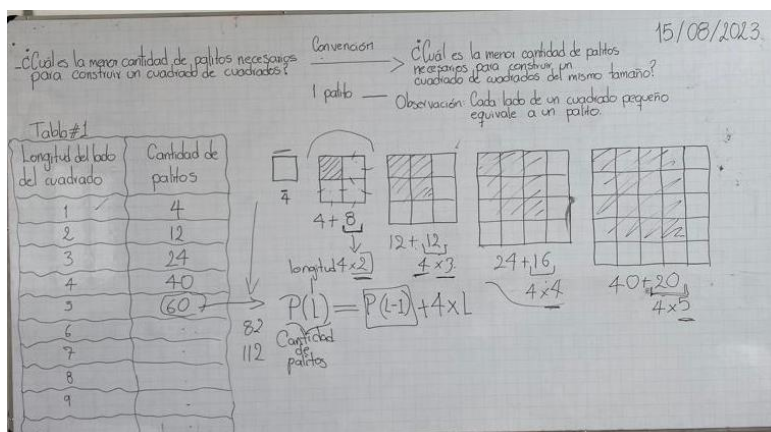 15/08/2023.
-¿Cuál es la menor cantidad de palitos necesarios
para construir un cuadrado de cuadrados?
Convención
¿Cuál es la menor cantidad de palitos
necesarios para construir un
cuadrado de cuadrados del mismo tamaño?
1 palito — Observación: Cada lado de un cuadrado pequeño
equivale a un palito.
Tabla #1
Longitud del lado
del cuadrado
Cantidad de
palitos
1 4
2 12
3 24
4 40
5 60
6
7
8
9
82
112
4
4+8
longitud 4x2
12+12
4x3
24+16
4x4
40+20
4x5
P(L) = P(L-1) + 4xL
Cantidad
de
palitos